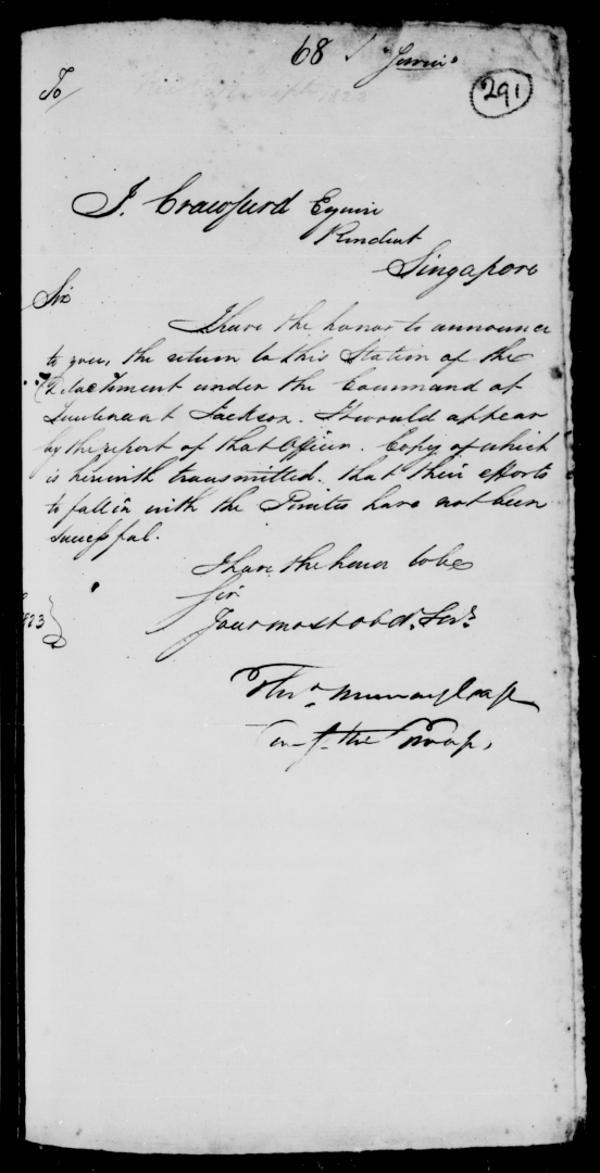 68
291
To
J. Crawfurd Esquire
Resident
Singapore
Sir
I have the honor to announce
to you, the return to this Station of the
Detachment under the Command of
Lieutenant Jackson. It would appear
by the report of that Officer. Copy of which
is herewith transmitted. that their efforts
to fall in with the Pirates have not been
successful.
I have the honor to be
Sir
Your most obdt. Servt.
Thos. Murray Capt
the Troops,